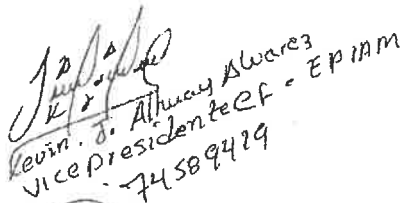 Kevin. J. Alhuay Alvarez
vicepresidente CF. EPIAM
74589429